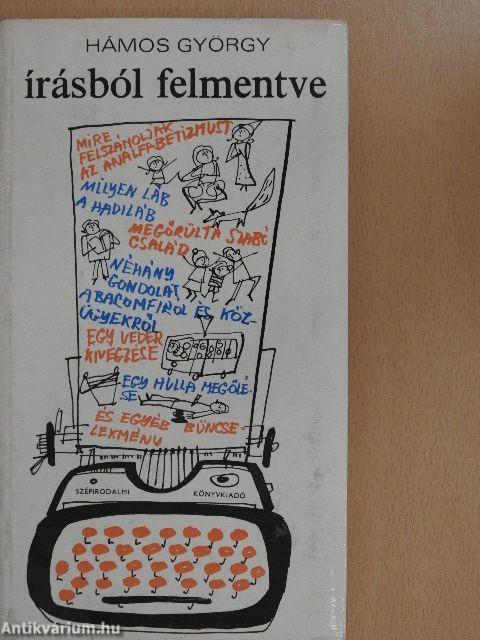 HÁMOS GYÖRGY
írásból felmentve
MIRE
FELSZÁMOLJÁK
AZ ANALFABETIZMUST
MILYEN LÁB
A HADILÁB
MEGŐRÜLT A SZABÓ
CSALÁD
NÉHÁNY
GONDOLAT
A BACOMFIROL ÉS KÖZ-
ÜGYEKRŐL
EGY VEDER
KIVÉGZÉSE
EGY HULLA MEGÖLÉ-
SE
ÉS EGYÉB BŰNCSE-
LEKMÉNY
SZÉPIRODALMI KÖNYVKIADÓ
Antikvárium.hu